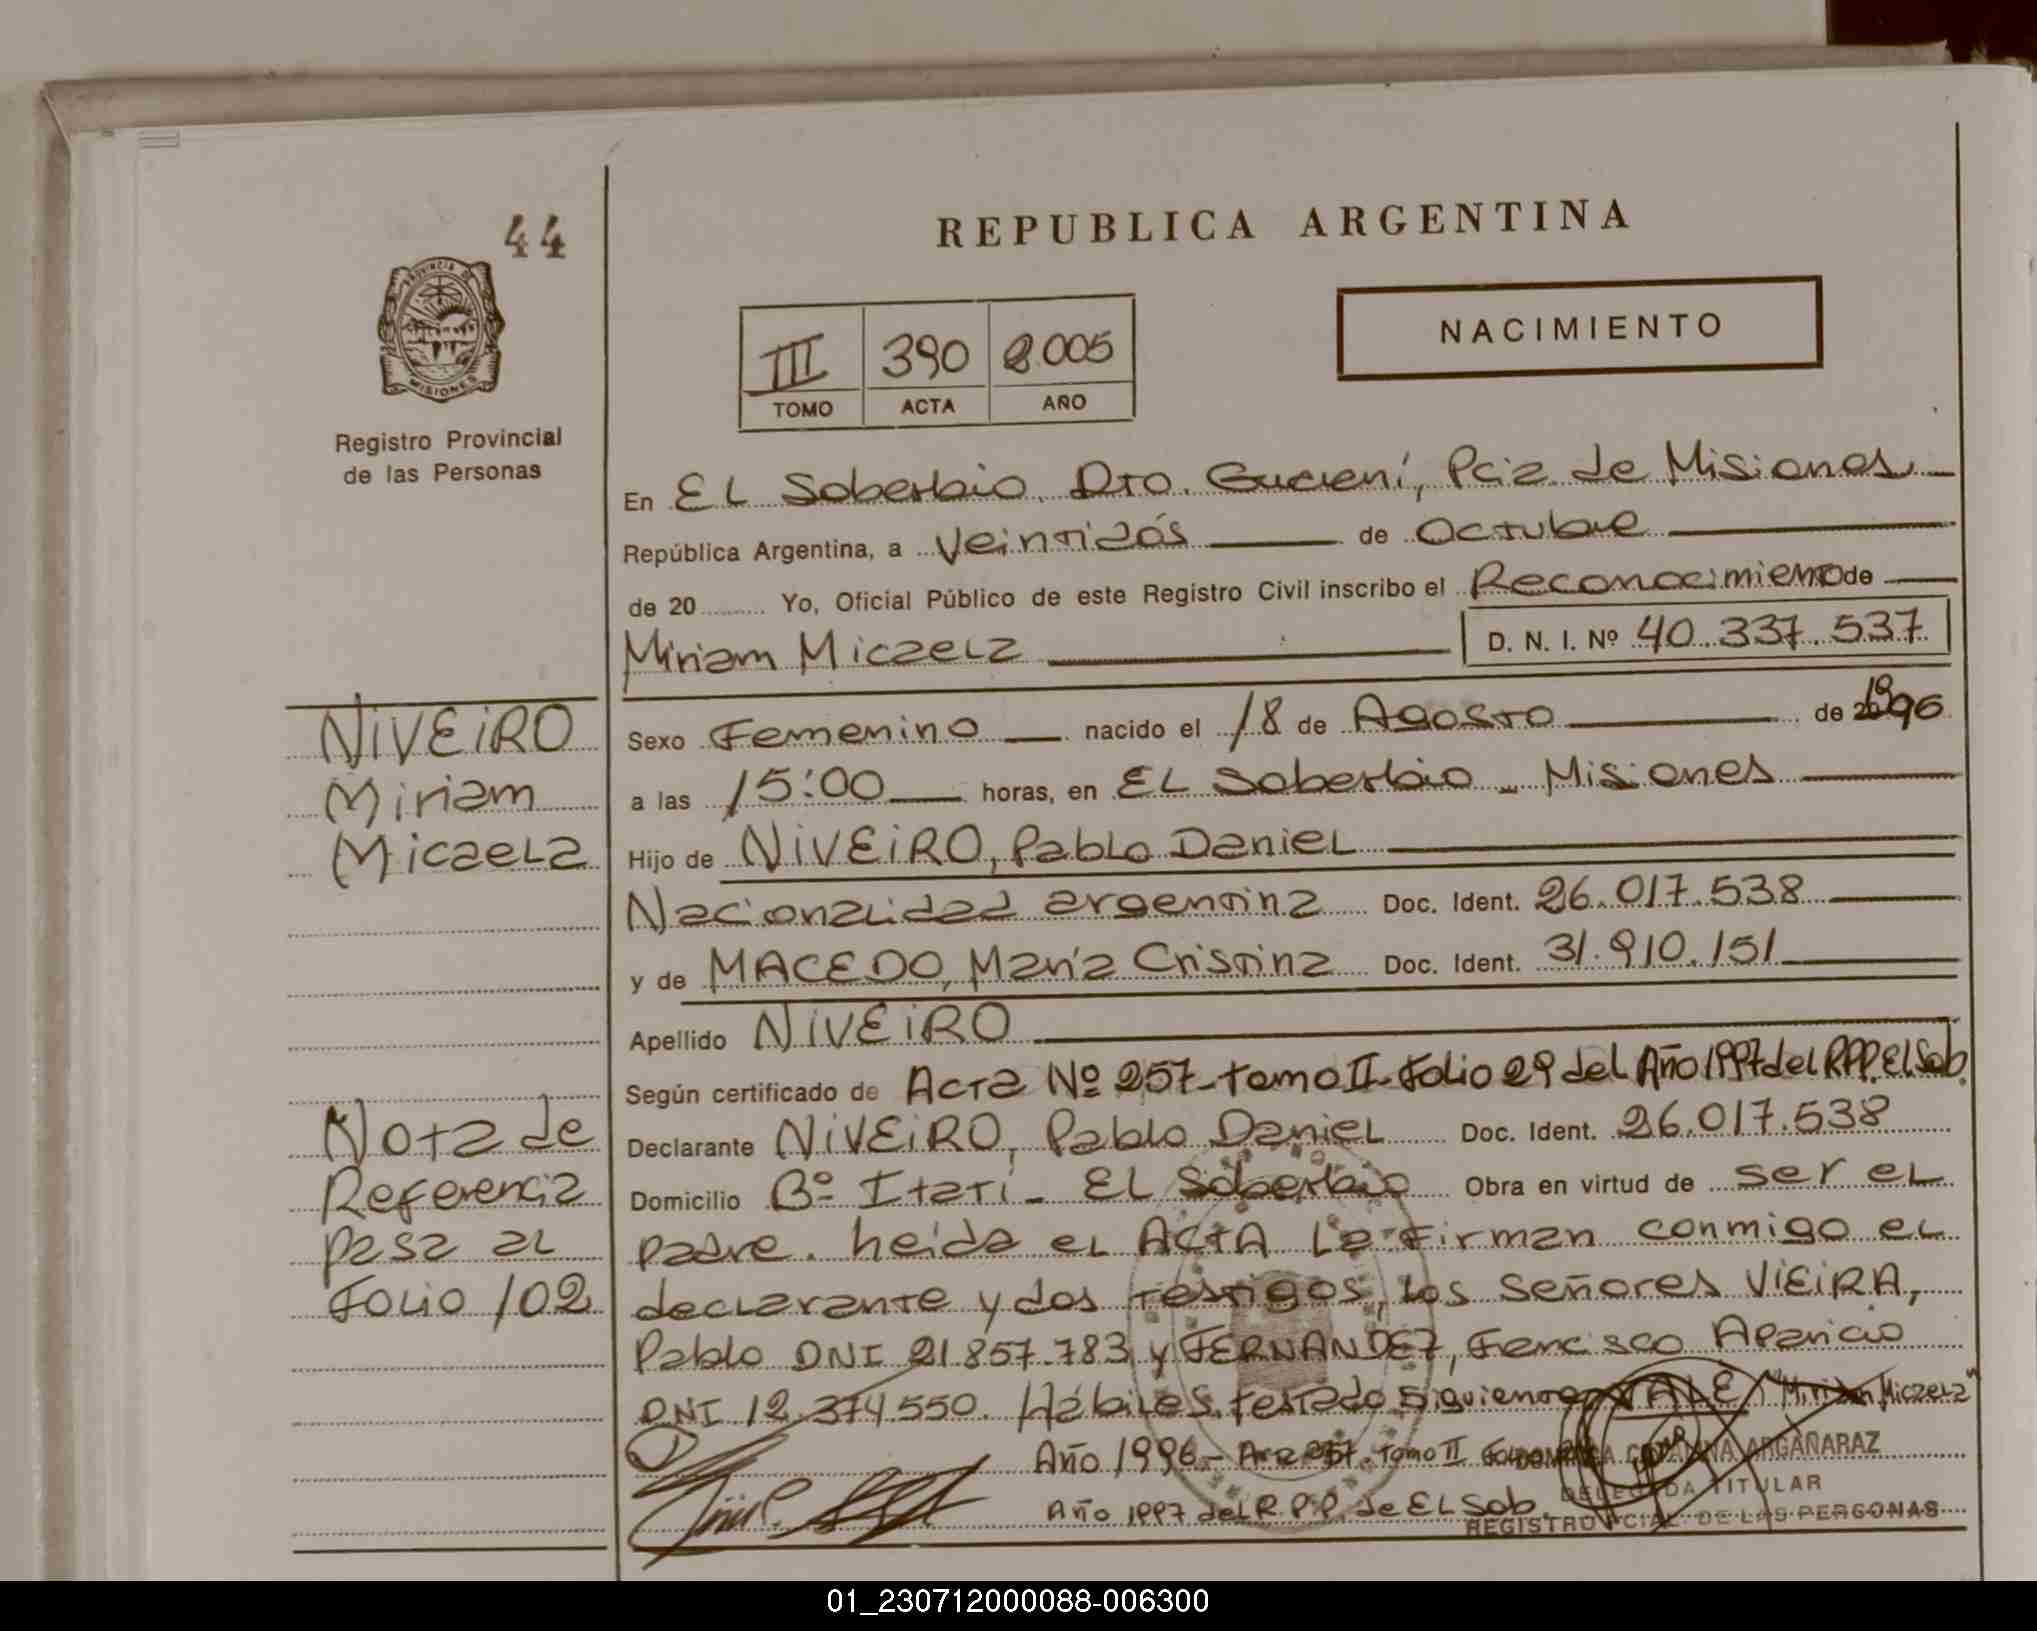 44
REPUBLICA ARGENTINA
PROVINCIA DE
MISIONES
Registro Provincial
de las Personas
III 390 2.005
TOMO ACTA AÑO
NACIMIENTO
En EL Soberbio, Dto. Guaraní, Pcia de Misiones
República Argentina, a Veintidós de Octubre
de 20 Yo, Oficial Público de este Registro Civil inscribo el Reconocimiento de
Miriam Micaela D. N. I. Nº 40.337.537
Sexo Femenino nacido el 18 de Agosto de 1996
a las 15:00 horas, en EL Soberbio - Misiones
Hijo de NIVEIRO, Pablo Daniel
Nacionalidad argentina Doc. Ident. 26.017.538
y de MACEDO, María Cristina Doc. Ident. 31.910.151
Apellido NIVEIRO
Según certificado de Acta Nº 257-tomo II-Folio 29 del Año 1997 del R.P.P. El Sob.
Declarante NIVEIRO, Pablo Daniel Doc. Ident. 26.017.538
Domicilio Bº Itatí - EL Soberbio Obra en virtud de ser el
padre. heída el ACTA La Firman conmigo el
declarante y dos testigos, los señores VIEIRA,
Pablo DNI 21.857.783 y FERNANDEZ, Francisco Aparicio
DNI 12.374.550. Hábiles. testado siguiente VALE "Miriam Micaela"
Año 1996 - Acta 257. tomo II
Año 1997 del R.P.P. de EL Sob.
ARGAÑARAZ
DELEGADA TITULAR
REGISTRO DE LAS PERSONAS
NIVEIRO
Miriam
Micaela
Nota de
Referencia
pasa al
Folio 102
01_230712000088-006300